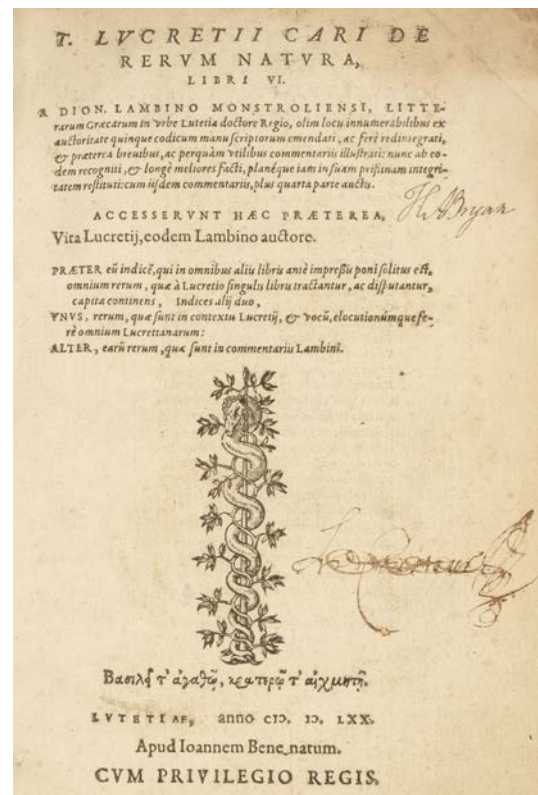 T. LVCRETII CARI DE
RERVM NATVRA,
LIBRI VI.
A DION. LAMBINO MONSTROLIENSI, LITTE-
rarum Græcarum in vrbe Lutetia doctore Regio, olim locis innumerabilibus ex
auctoritate quinque codicum manu scriptorum emendati, ac ferè redintegrati,
& præterea breuibus, ac perquàm vtilibus commentariis illustrati: nunc ab eo-
dem recogniti, & longè meliores facti, planéque iam in suam pristinam integri-
tatem restituti: cum iisdem commentariis, plus quarta parte auctis.
H. Bryan
ACCESSERVNT HÆC PRÆTEREA,
Vita Lucretij, eodem Lambino auctore.
PRÆTER eũ indicẽ, qui in omnibus aliis libris antè impreßis poni solitus est,
omnium rerum, quæ à Lucretio singulis libris tractantur, ac disputantur,
capita continens, Indices alij duo,
VNVS, rerum, quæ sunt in contextu Lucretij, & vocũ, elocutionúmque fe-
rè omnium Lucretianarum:
ALTER, earũ rerum, quæ sunt in commentariis Lambini.
Βασιλεῖ τ' ἀγαθῷ, κρατερῷ τ' αἰχμητῇ.
LVTETIAE, anno CIↃ. IↃ. LXX.
Apud Ioannem Bene natum.
CVM PRIVILEGIO REGIS.